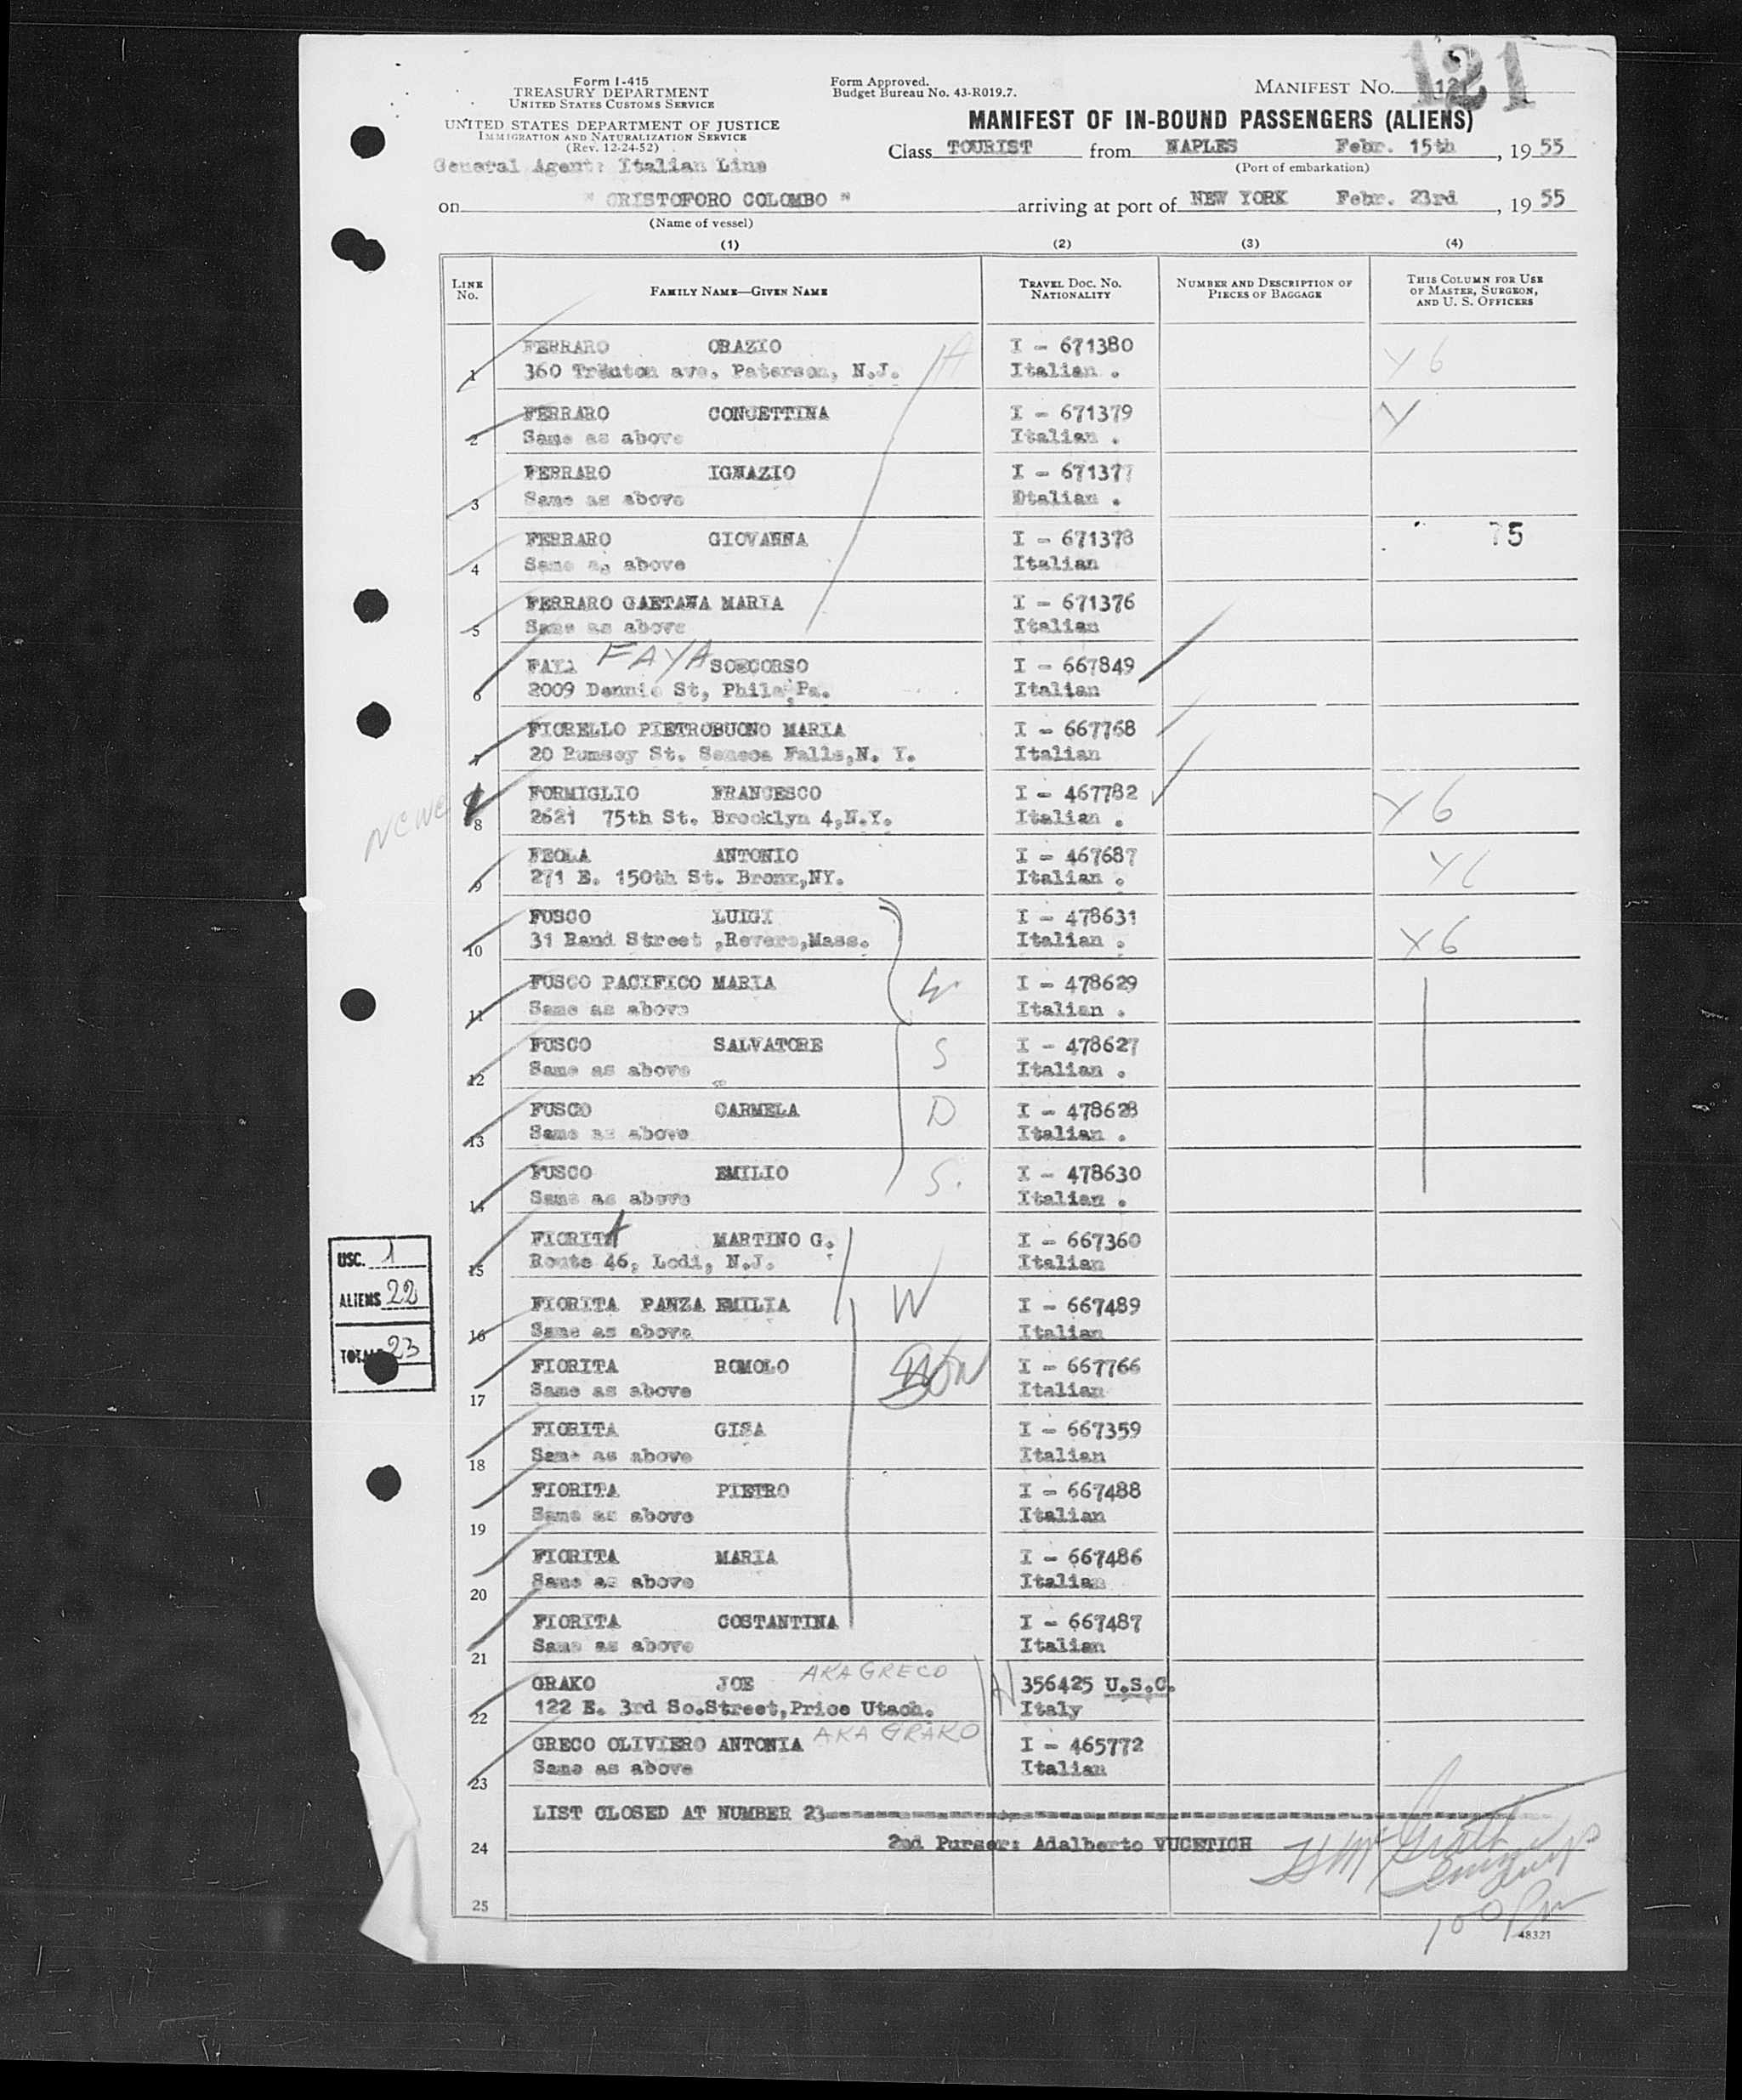 Form I-415
TREASURY DEPARTMENT
UNITED STATES CUSTOMS SERVICE
UNITED STATES DEPARTMENT OF JUSTICE
IMMIGRATION AND NATURALIZATION SERVICE
(Rev. 12-24-52)
General Agent: Italian Line
Form Approved.
Budget Bureau No. 43-R019.7.
MANIFEST NO. 121
MANIFEST OF IN-BOUND PASSENGERS (ALIENS)
Class TOURIST from NAPLES Febr. 15th, 19 55
(Port of embarkation)
on " CRISTOFORO COLOMBO " arriving at port of NEW YORK Febr. 23rd, 19 55
(Name of vessel)
(1) (2) (3) (4)
LINE No. FAMILY NAME—GIVEN NAME TRAVEL DOC. NO. NATIONALITY NUMBER AND DESCRIPTION OF PIECES OF BAGGAGE THIS COLUMN FOR USE OF MASTER, SURGEON, AND U. S. OFFICERS
FERRARO ORAZIO I - 671380 Y 6
1 360 Treuton ave, Paterson, N.J. Italian .
FERRARO CONCETTINA I - 671379 Y
2 Same as above Italian .
FERRARO IGNAZIO I - 671377
3 Same as above Dtalian .
FERRARO GIOVANNA I - 671378 75
4 Same as above Italian
FERRARO GAETANA MARIA I - 671376
5 Same as above Italian
FAYA FAYA SOCCORSO I - 667849
6 2009 Dennie St, Phila, Pa. Italian
FIORELLO PIETROBUONO MARIA I - 667768
7 20 Rumsey St. Seneca Falls,N. Y. Italian
FORMIGLIO FRANCESCO I - 467782 Y 6
8 2621 75th St. Brooklyn 4,N.Y. Italian .
FEOLA ANTONIO I - 467687 Y6
9 271 E. 150th St. Bronx,NY. Italian .
FUSCO LUIGI I - 478631
10 31 Rand Street ,Revere,Mass. Italian . Y 6
FUSCO PACIFICO MARIA W I - 478629
11 Same as above Italian .
FUSCO SALVATORE S I - 478627
12 Same as above Italian .
FUSCO CARMELA D I - 478628
13 Same as above Italian .
FUSCO EMILIO S. I - 478630
14 Same as above Italian .
FIORITA MARTINO G. I - 667360
15 Route 46, Lodi, N.J. Italian
FIORITA PANZA EMILIA W I - 667489
16 Same as above Italian
FIORITA ROMOLO I - 667766
17 Same as above Italian
FIORITA GISA I - 667359
18 Same as above Italian
FIORITA PIETRO I - 667488
19 Same as above Italian
FIORITA MARIA I - 667486
20 Same as above Italian
FIORITA COSTANTINA I - 667487
21 Same as above Italian
GRAKO JOE AKA GRECO 356425 U.S.C.
22 122 E. 3rd So.Street,Price Utach. Italy
GRECO OLIVIERO ANTONIA AKA GRAKO I - 465772
23 Same as above Italian
LIST CLOSED AT NUMBER 23
24 2nd Purser: Adalberto VUCETICH
25
48321
USC. 1
ALIENS 22
TOTAL 23